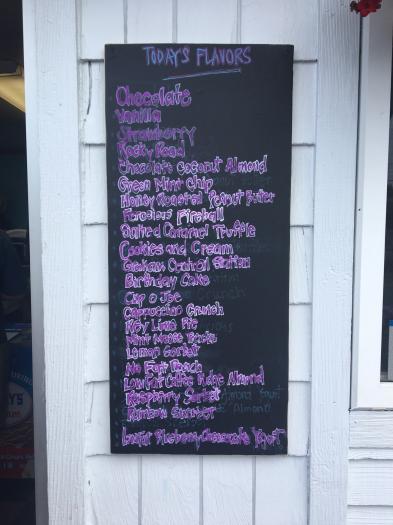 TODAY'S FLAVORS
Chocolate
Vanilla
Strawberry
Rocky Road
Chocolate Coconut Almond
Green Mint Chip
Honey Roasted Peanut Butter
Ferocious Fireball
Salted Caramel Truffle
Cookies and Cream
Graham Central Station
Birthday Cake
Cup o Joe
Cappuccino Crunch
Key Lime Pie
Mint Moose
Lemon Sorbet
No Fat Peach
Low Fat Coffee Fudge Almond
Raspberry Sorbet
Rainbow Sherbet
Lowfat Blueberry Cheesecake Yogurt